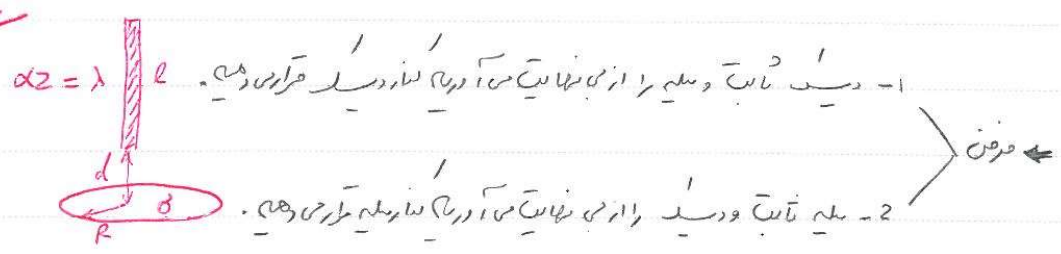 αz = λ
l
d
σ
R
1- دیسک ثابت و میله را از بی نهایت می آوریم کنار دیسک قرار می دهیم.
← فرض
2- میله ثابت و دیسک را از بی نهایت می آوریم کنار میله قرار می دهیم.